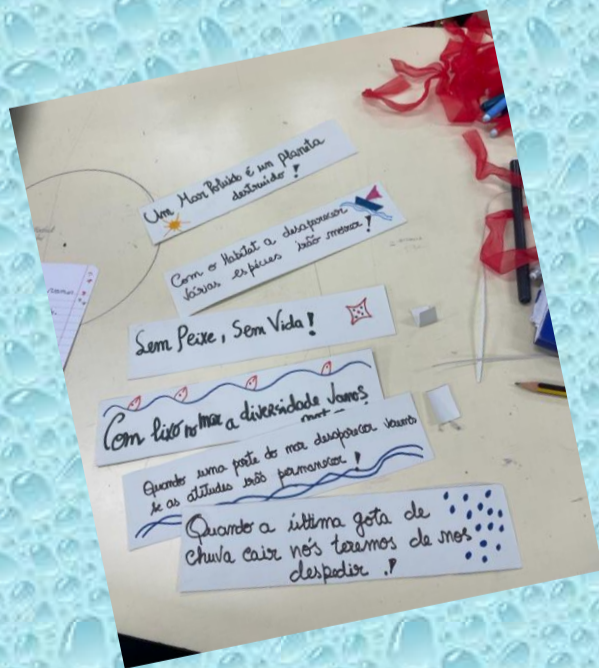 Um Mar Poluido é um planeta
destruido !
Com o Habitat a desaparecer
Várias espécies irão morrer !
Sem Peixe, Sem Vida !
Com lixo no mar a diversidade Vamos
Quando uma parte do mar desaparecer vamos
se as atitudes irão permanecer !
Quando a última gota de
chuva cair nós teremos de nos
despedir !